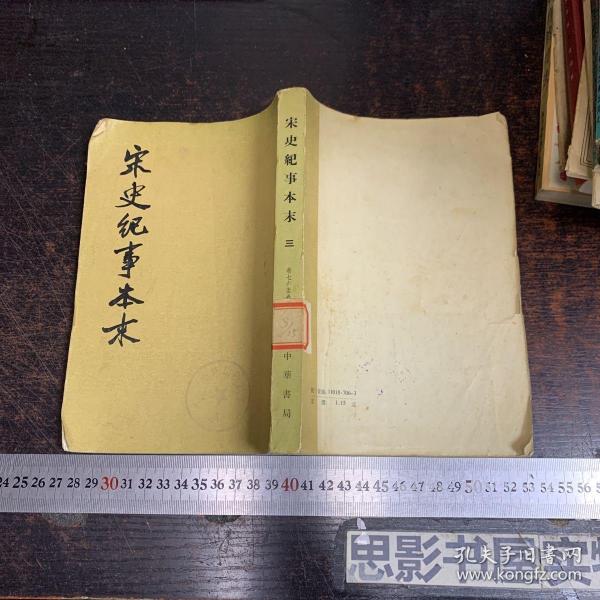 宋史纪事本末
宋史紀事本末
三
卷七
中華書局
11018·706-3
1.15 元
24 25 26 27 28 29 30 31 32 33 34 35 36 37 38 39 40 41 42 43 44 45 46 47 48 49 50 51 52 53 54 55 56
思影书屋实拍
孔夫子旧书网
www.kongfz.com